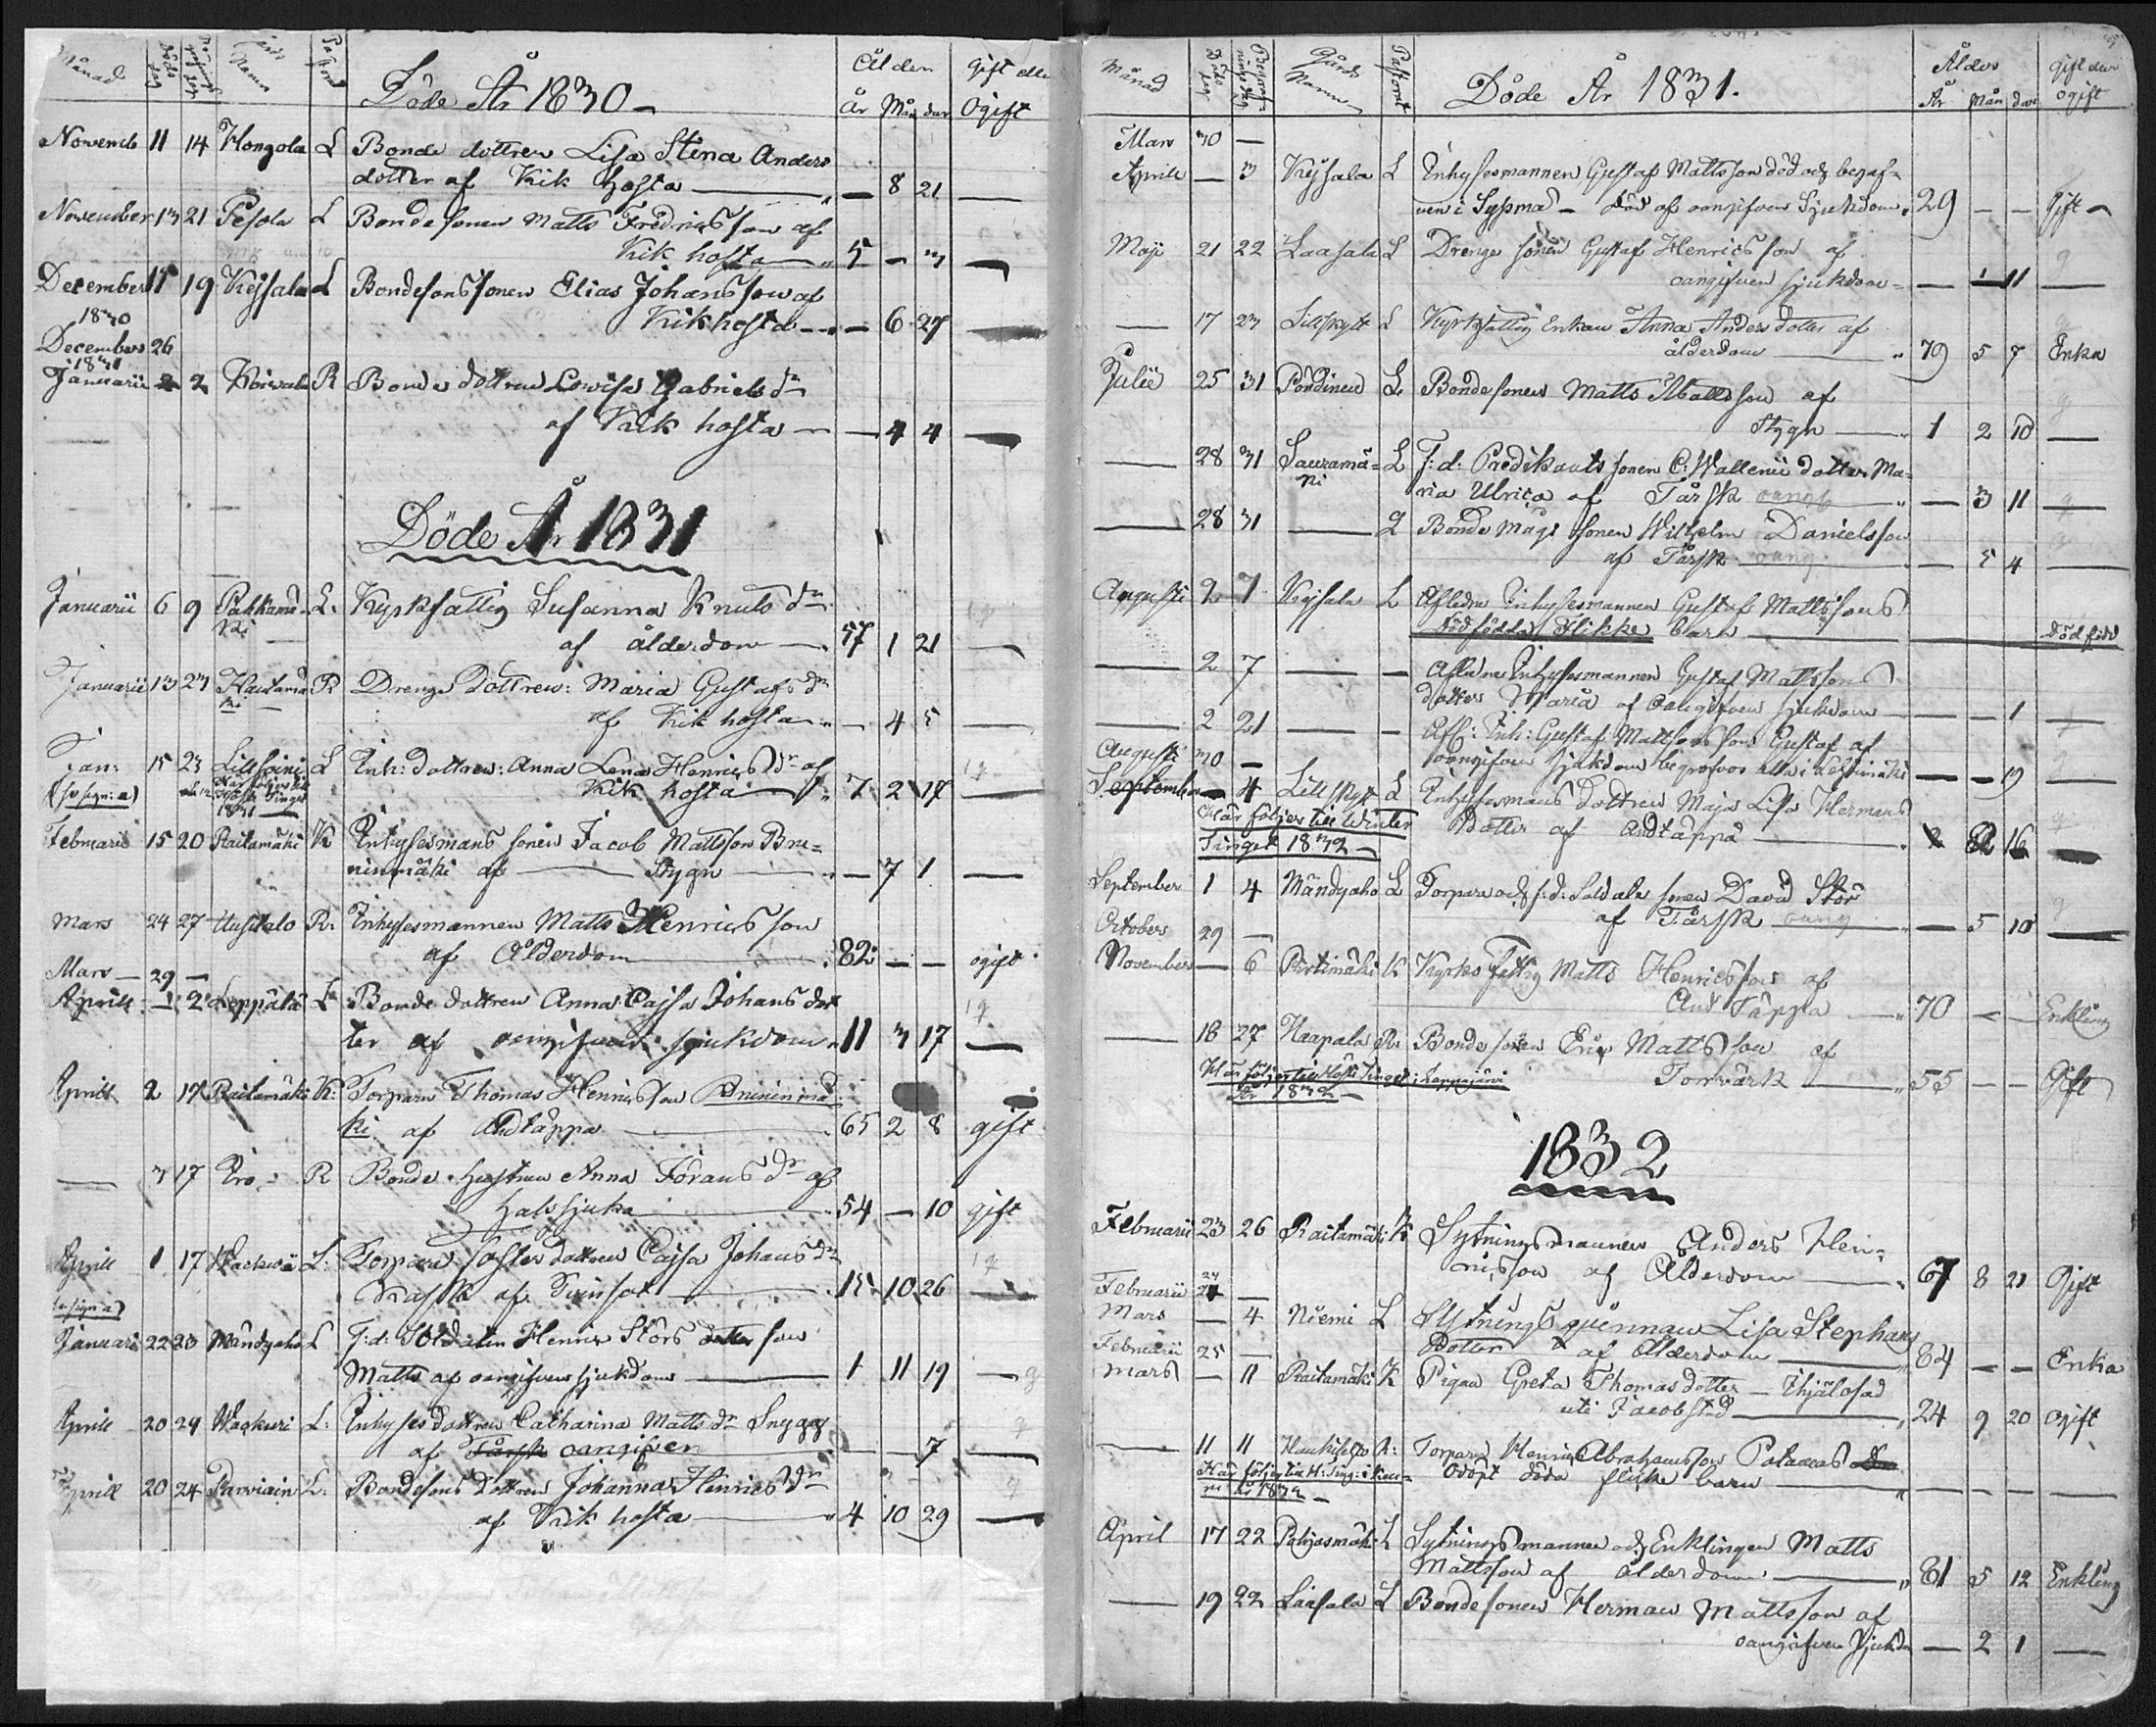 Månad Döde dag Begrafnings dag Gårds Namn
Döde År 1830
Ålder
Gift eller Ogift
År Mån dar
Novemb 11 14 Hongola L Bonde dottren Lisa Stina Anders
dotter af Kik hosta — 8 21 —
November 13 21 Pesola L Bondesonen Matts Fredricsson af
Kik hosta 5 — 3 —
December 15 19 Keisala L Bondesonssonen Elias Johansson af
Kikhosta — 6 27 —
1830
December 26
1831
Januarii 2 R Bonde dottren Lovisa Gabriels dr
af Kik hosta — 4 4 —
Döde År 1831
Januarii 6 9 Pakkamä L. Kyrkfattig Susanna Knuts dr
ki af ålderdom 57 1 21 —
Januarii 13 23 Hautamä R Drengs dottren: Maria Gustafs dr
ki af Kik hosta — 4 5 —
Jan: 15 23 L Inh: dottren: Anna Lena Henrics dr af
Kik hosta 7 2 17
1831
Februarii 15 20 Raitamäki K Inhysesmans sonen Jacob Mattsson Bru-
ninmäki af Stygn — 7 1 —
Mars 24 27 Uusitalo R. Inhysesmannen Matts Henricsson
af Ålderdom 82 — — ogift
Mars 29 —
Aprill — 2 Leppälä L Bonde dottren Anna Cajsa Johans dot
ter af oangifven sjukdom 11 3 17 —
Aprill 2 17 Raitamäki K: Torparn Thomas Henricsson Bruninmä
ki af Andtäppa 65 2 8 gift
— 3 17 R Bonde hustrun Anna Jörans dr af
halssjuka 54 — 10 gift
Aprill 1 17 L: Torpare syster dottren Cajsa Johans dr
Krask af Tvinsot 15 10 26 —
Januari 22 23 Mändyaho L F:d: Soldaten Henric Störs dotter son
Matts af oangifven sjukdom 1 11 19 —
Aprill 20 24 L: Inhyses dottren Catharina Matts dr Snygg
af Tårsk oangifven — — 7 —
Aprill 20 24 Parviain L: Bondesons dottren Johanna Henrics dr
af Kik hosta 4 10 29 —
Månad Döde dag Begrafnings dag Gårds Namn
Döde År 1831.
Ålder
Gift eller ogift
År Mån dar
Mars 30 —
Aprill — 3 Keisala L Inhysesmannen Gustaf Mattsson död och begraf-
ven i Syssmä — död af oangifven Sjukdom 29 — — Gift
Maji 21 22 Laasala L Drenge sonen Gustaf Henricsson af
oangifven sjukdom — 1 11 —
— 17 23 Lillskytt L Kyrkfattig Enkan Anna Anders dotter af
ålderdom 79 5 7 Enka
Julii 25 31 Pöndinen L Bondesonen Matts Mattsson af
Stygn 1 2 10 —
— 28 31 Sauramä- L F:d: Predikants sonen C: Wallenii dotter Ma-
ki ria Ulrica af Tårsk — 3 11 —
— 28 31 — L Bonde mågs sonen Wilhelm Danielsson
af Tårsk oang — 5 4 —
Augusti 2 7 Keisala L Afledne Inhysesmannen Gustaf Mattssons
dödfödda flikke barn — dödfödd
— 2 7 — — Afledne Inhysesmannen Gustaf Mattssons
dotter Maria af oangifven sjukdom — — 1 —
— 2 21 — — Afl: Inh: Gustaf Mattsons son Gustaf af
oangifven sjukdom begrafven — — 19 —
Augusti 30 —
September — 4 Lillskytt L Inhysesmans dottren Maja Lisa Hermans
Dotter af Andtäppa 16 —
Här följer till Winter
Tinget 1832
September 1 4 Mändyaho L Torpare och f:d: Soldats sonen David Stör
af Tårsk oang — 5 10 —
October 29 —
November — 6 Pertimäki K Kyrko fattig Matts Henricsson af
And Täppa 70 — — Enkling
— 18 27 Haapala R. Bonde sonen Eric Mattsson af
Torrvärk 55 — — Gift
Här följer till Höste Tinget i Lappajärvi
år 1832
1832
Februarii 23 26 Raitamäki K Sytningsmannen Anders Hen-
ricsson af Ålderdom 67 8 21 Gift
Februarii 24 —
Mars — 4 Niemi L Sytnings qvinnan Lisa Stephans
Dotter af Ålderdom 84 — — Enka
Februarii 25 —
Mars — 11 Raitamäki K Pigan Greta Thomas dotter — Ihjälosad
uti Jacobstad 24 9 20 ogift
— 11 11 R: Torparn Henric Abrahamsson
Odöpt döda flicke barn — — — —
år 1832
April 17 22 Pohjasmäki L Sytningsmannen och Enklingen Matts
Mattsson af ålderdom 81 5 12 Enkling
— 19 22 Laasala L Bondesonen Herman Mattsson af
oangifven Sjukdm — 2 1 —